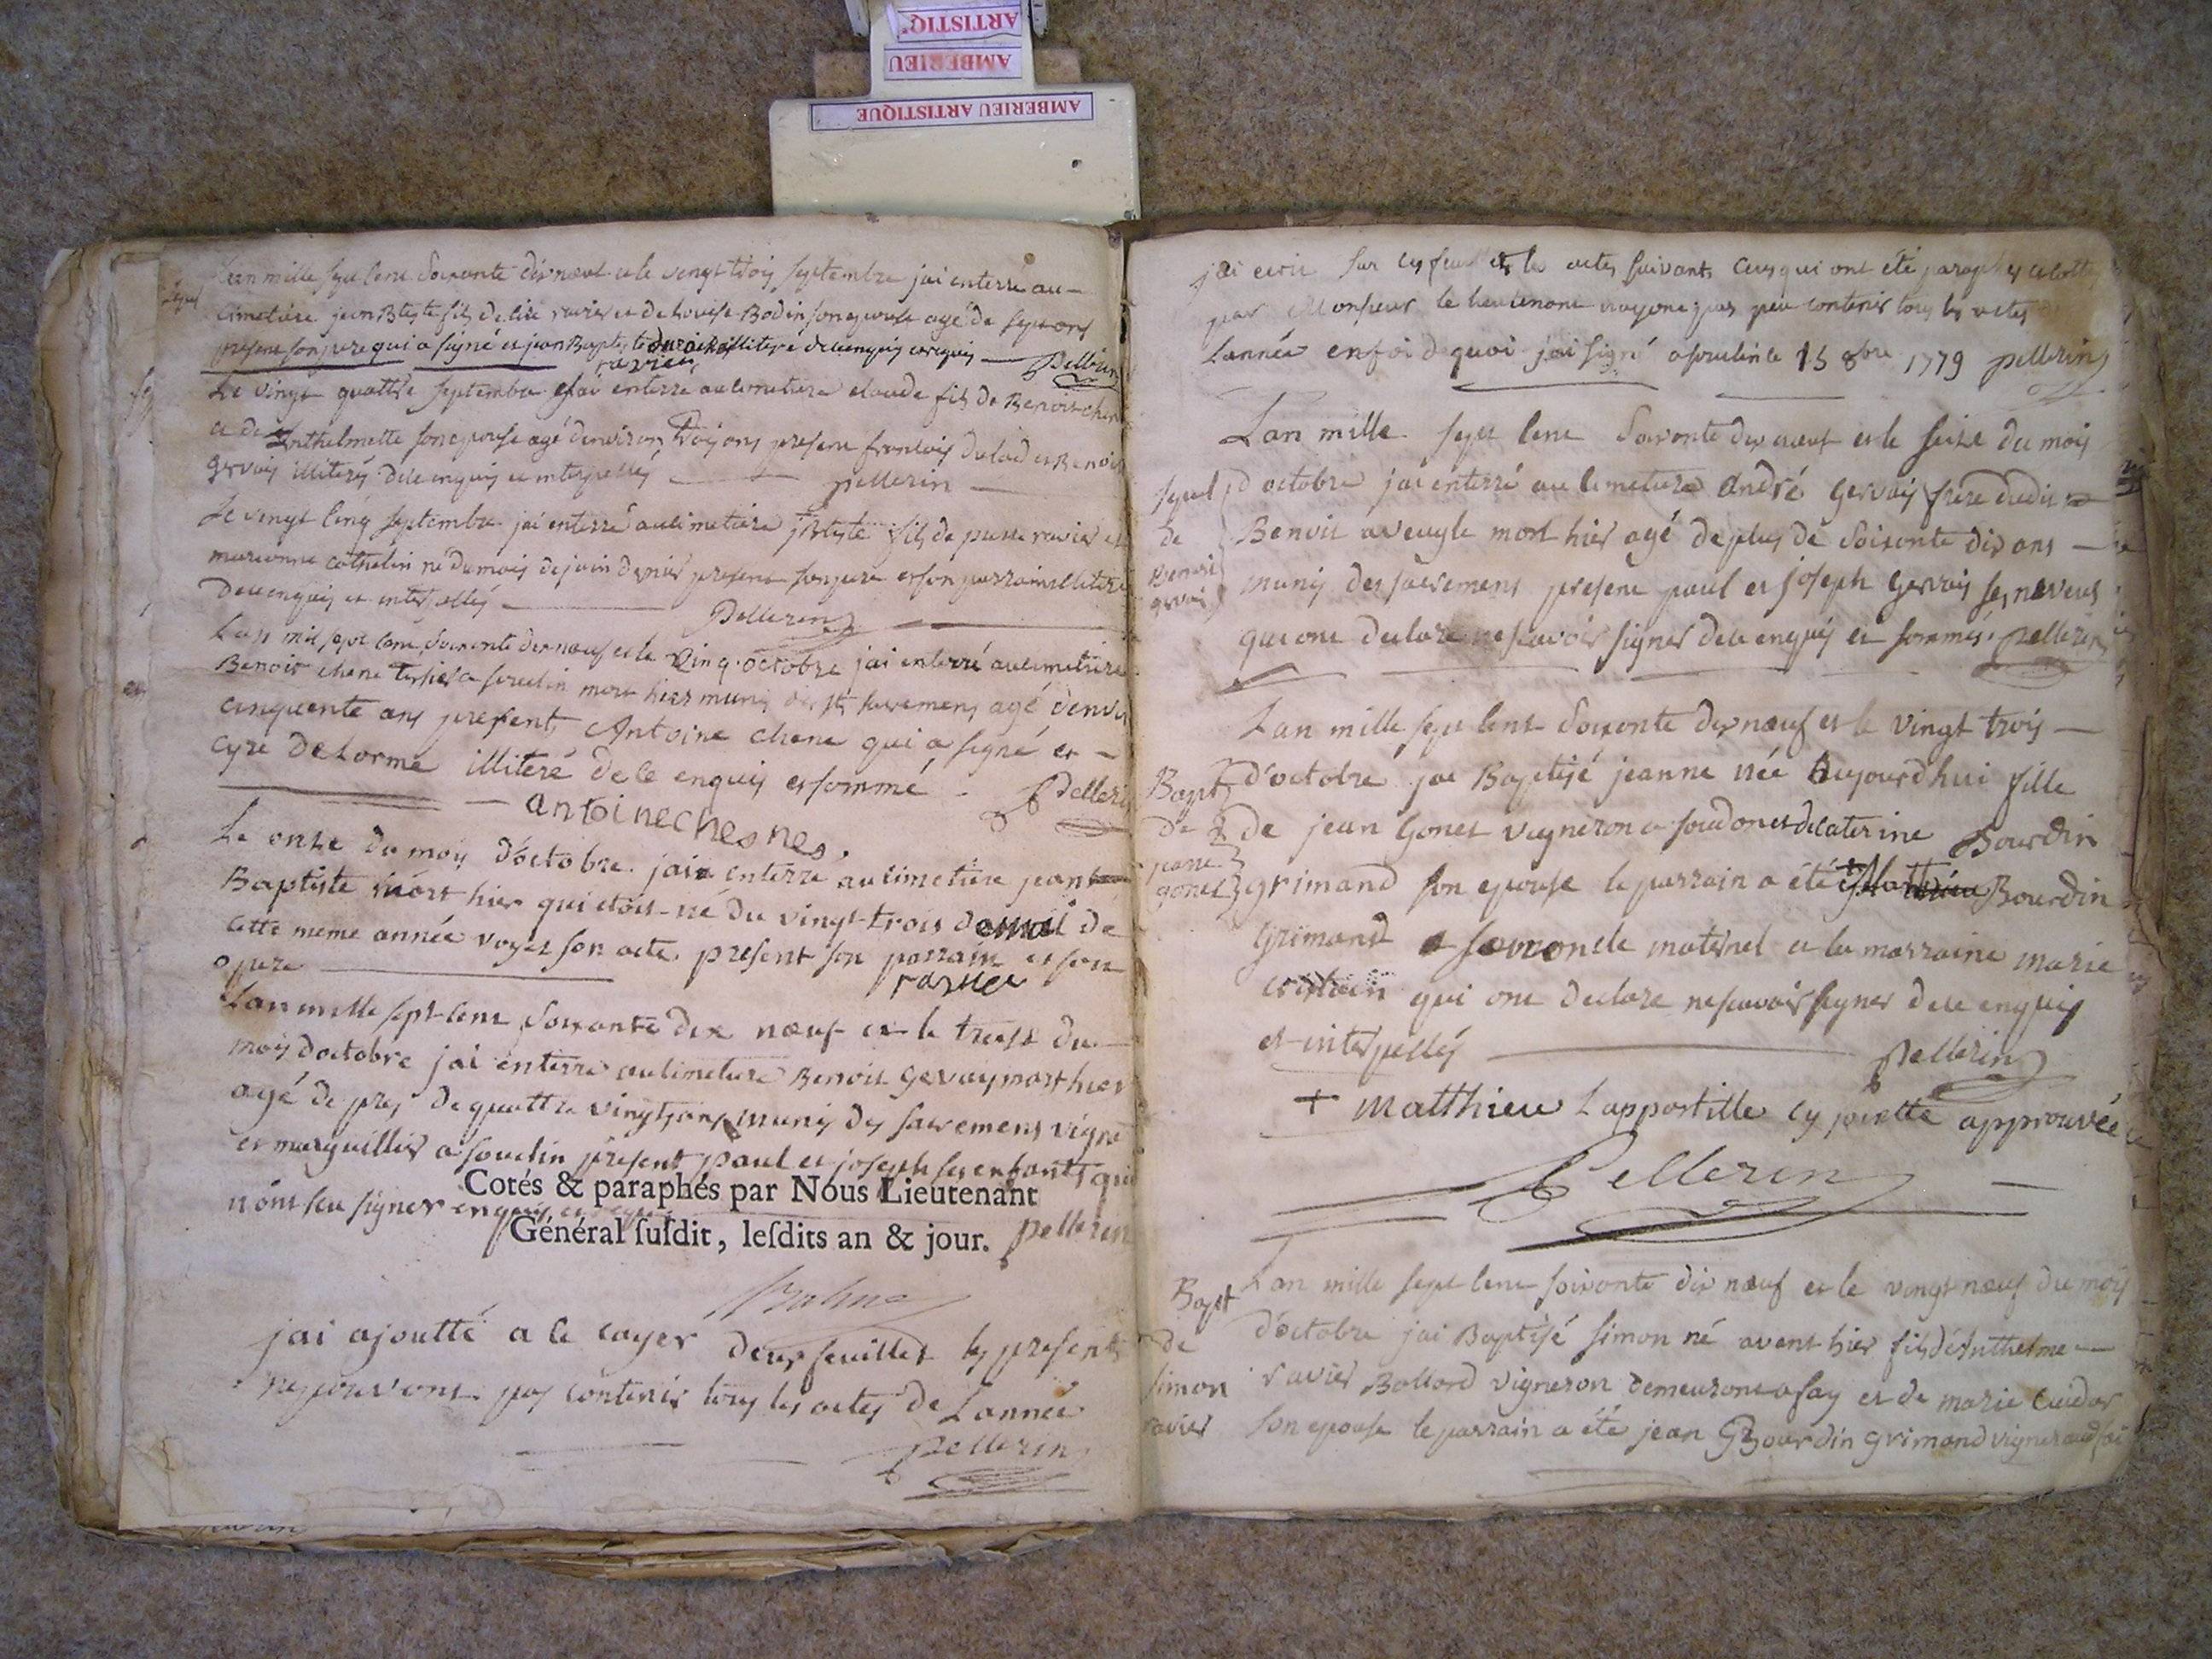 ARTISTIQ
AMBERIEU
AMBERIEU ARTISTIQUE
Lan mille sept cent soixante dix neuf et le vingt trois septembre jai enterré au
cimetiere jean Btiste fils de ravier et de Louise Bodin son epouse agé de sept ans
present son pere qui a signé et jean Baptiste illiteré de ce enquis et requis Pellerin
ravier
Le vingt quattre septembre jai enterré au cimetiere claude fils de Benoit
et de Anthelmette son epouse agé denviron trois ans present francois et Benoit
gervais illiterés de ce enquis et interpellés pellerin
Le vingt cinq septembre jai enterré au cimetiere jBtiste fils de pierre ravier et
marianne cathelin né du mois de juin dernier present son pere et son parrain illiteré
de ce enquis et interpellés Pellerin
Lan mil sept cent soixante dix neuf et le cinq octobre jai enterré au cimetiere
Benoit chene a souclin mort hier munis des sts sacremens agé denvi
cinquente ans present Antoine chene qui a signé et
cyre delorme illiteré de ce enquis et sommé Pellerin
antoine chesnes.
Le onze du mois d'octobre jai enterré au cimetiere jean
Baptiste mort hier qui etoit né du vingt trois de
cette meme année voyez son acte present son parrain et son
pere
ravier
Lan mille sept cent soixante dix neuf et le treize du
mois doctobre jai enterré au cimetiere Benoit gervais mort hier
agé de pres de quattre vingts ans munis des sacremens vigne
et marguillier a souclin present paul et joseph ses enfants qui
n'ont seu signer enquis et requis pellerin
Cotés & paraphés par Nous Lieutenant
Général susdit, lesdits an & jour.
jai ajoutté a ce cayer deux feuillet les presents
ne pouvant pas contenir tous les actes de Lannée
pellerin
jai ecrit sur ces feuillets les actes suivants ceux qui ont été paraphes et cottes
par Monsieur le lieutenant nayant pas peu contenir tous les actes de
Lannée en foi de quoi jai signé a souclin le 15 8bre 1779 pellerin
Lan mille sept cent soixante dix neuf et le seize du mois
sepul d octobre jai enterré au cimetiere andré gervais frere dudit
de Benoit aveugle mort hier agé de plus de soixante dix ans
gervais munis des sacremens present paul et joseph gervais ses neveus
qui ont declaré ne scavoir signer de ce enquis et sommés. pellerin
Lan mille sept cent soixante dix neuf et le vingt trois
Bapt d'octobre jai Baptisé jeanne née aujourdhui fille
de de jean gonet vigneron a soudon et de caterine Bourdin
jeanne
gonet grimand son epouse le parrain a été + Bourdin
grimand son oncle maternel et la marraine marie
qui ont declaré ne scavoir signer de ce enquis
et interpellés pellerin
+ matthieu Lappostille cy jointe approuvée
Pellerin
Bapt Lan mille sept cent soixante dix neuf et le vingt neuf du mois
de d'octobre jai Baptisé simon né avant hier fils d'Anthelme
simon ravier Ballard vigneron demeurant a fay et de marie
ravier son epouse le parrain a été jean Bourdin grimand vigneron